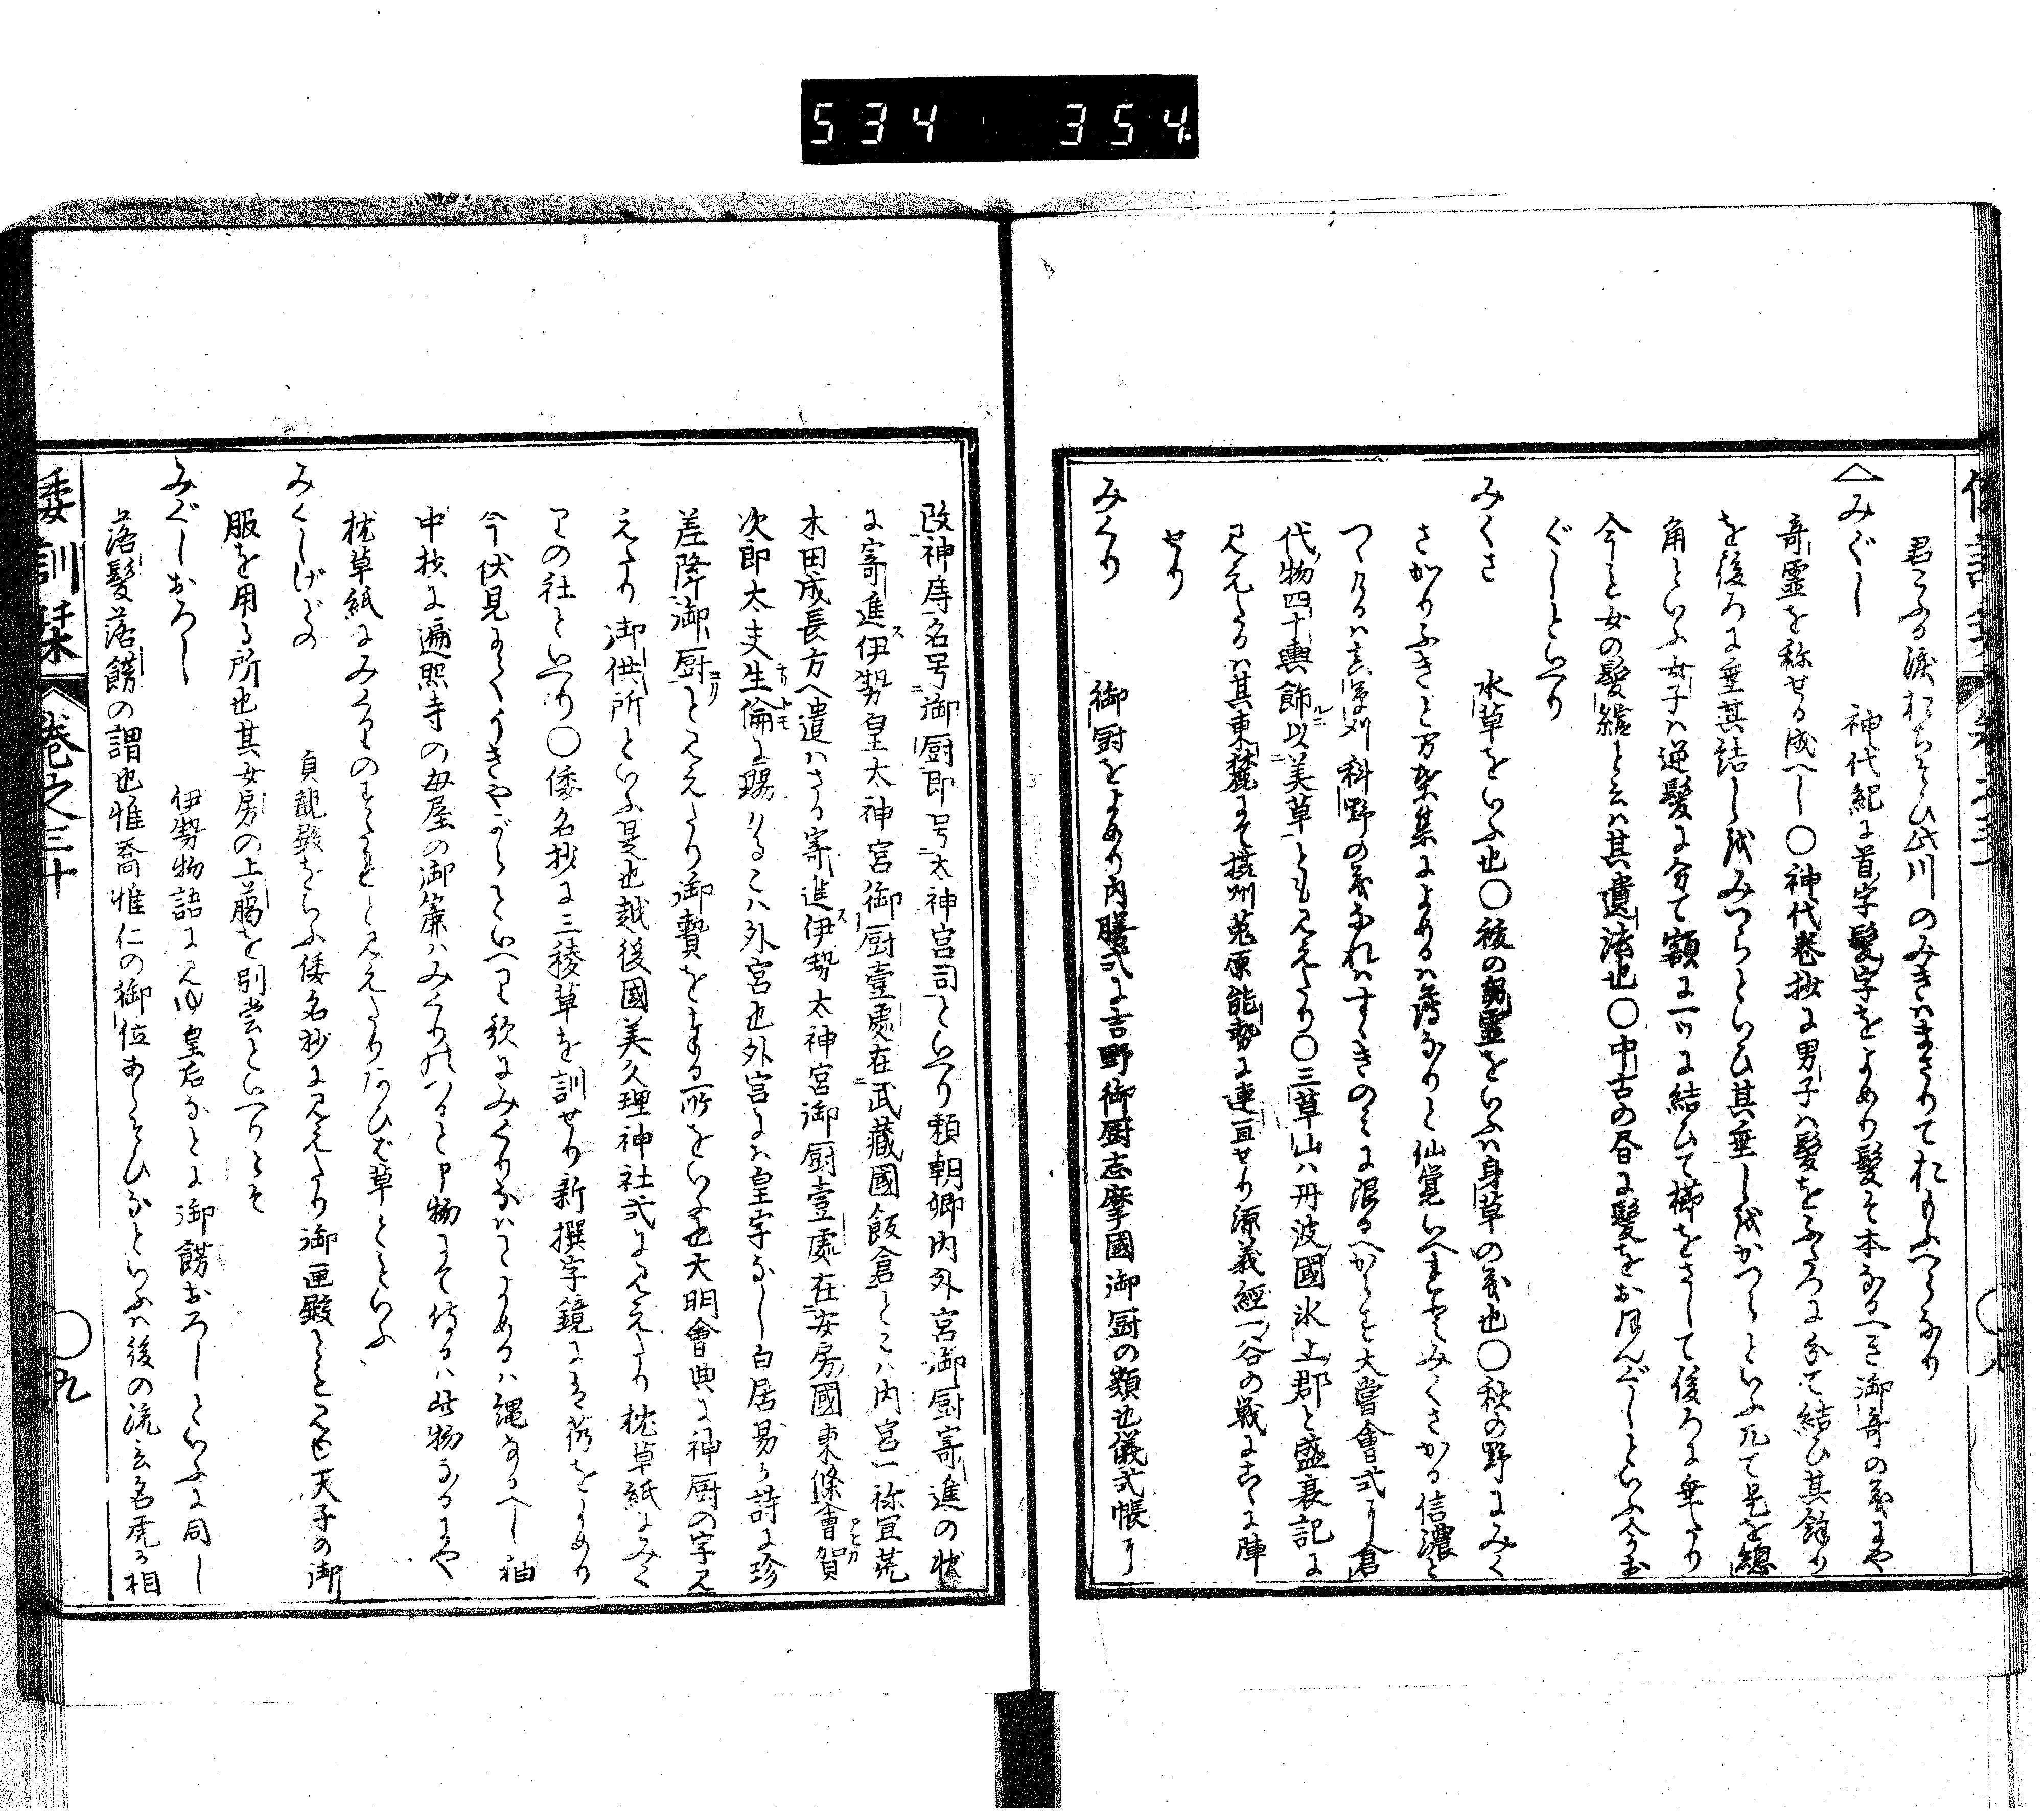 534 354
君こふる涙おちそひ此川のみきはまさりておもふへらなり
みぐし 神代紀に首字髪字をよめり髪そ本なるへき御奇の義にや
奇霊を称せる成へし○神代巻抄に男子ハ髪をふたつに分て結ひ其餘り
を後ろに垂其結しをみつらといひ其垂しをかつらといふ凡て是を總
角といふ女子ハ逆髪に分て額に一ツに結ひて櫛をさして後ろに垂たり
今も女の髪縮と云ハ其遺法也○中古の昏に髪をおほんぐしといふ今お
ぐしといへり
みくさ 水草をいふ也○後の霊をいふハ身草の義也○秋の野にみく
さかりふきと万葉集によめるハ薄なりと仙覚いへれとみくさかる信濃と
つゝけるハ刈科野の義なれハすゝきのミに限るへからす大嘗會式に倉
代物四十輿飾以美草ともみえたり○三草山ハ丹波國氷上郡と盛衰記に
みえたるハ其東麓にて摂州菟原能勢に連亘せり源義經一谷の戦にこゝに陣
せり
みくり 御厨をよめり内膳式に吉野御厨志摩國御厨の類也儀式帳に
改神庤名号御厨即号太神宮司といへり頼朝卿内外宮御厨寄進の状
に寄進伊勢皇太神宮御厨壹處在武藏國飯倉とこハ内宮一祢宜荒
木田成長方へ遣ハさる寄進伊勢太神宮御厨壹處在安房國東條會賀
次郎太夫生倫に賜ハるこハ外宮也外宮にハ皇字なし白居易か詩に珍
差降御厨とみえたり御贄をとる所をいふ也大明會典に神厨の字見
えたり御供所といふ是也越後國美久理神社式にみえたり枕草紙にみく
りの社といへり○倭名抄に三稜草を訓せり新撰字鏡に をよめり
今伏見にてうきやがらといへり歌にみくりなハとよめるハ縄なるへし袖
中抄に遍照寺の母屋の御簾ハみくりのつると申物にて侍るハ此物なるにや
枕草紙にみくりのすたれとみえたりたひひ草ともいふ
みくしげどの 貞觀殿をいふ倭名抄にみえたり御匣殿とも見ゆ天子の御
服を用る所也其女房の上臈を別当といへりとそ
みぐしおろし 伊勢物語に見ゆ皇后なとに御餝おろしといふに同し
落髪落餝の謂也惟喬惟仁の御位あらそひなといふハ後の流言名虎か相
倭訓栞 巻之三十 ○九